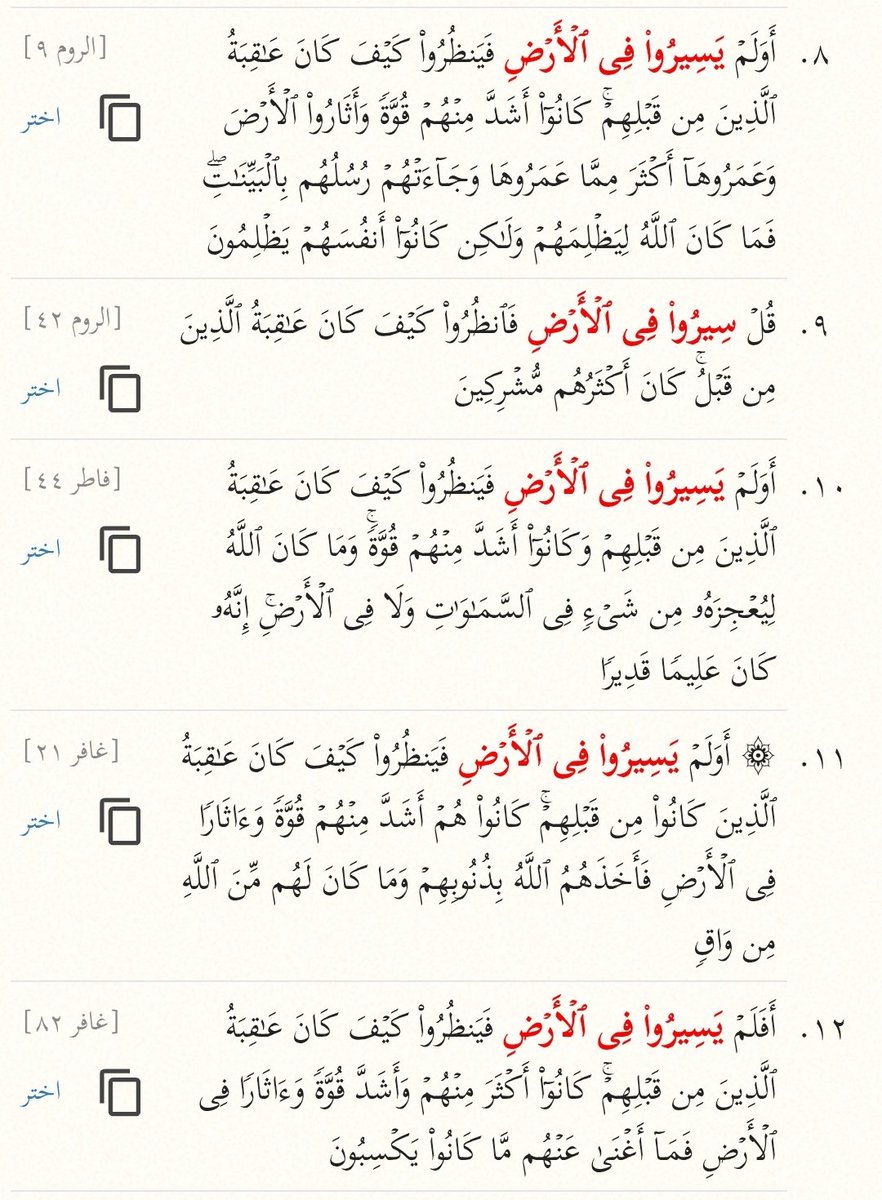 ٨. أَوَلَمۡ يَسِيرُواْ فِى ٱلۡأَرۡضِ فَيَنظُرُواْ كَيۡفَ كَانَ عَٰقِبَةُ [الروم ٩]
ٱلَّذِينَ مِن قَبۡلِهِمۡۚ كَانُوٓاْ أَشَدَّ مِنۡهُمۡ قُوَّةٗ وَأَثَارُواْ ٱلۡأَرۡضَ اختر
وَعَمَرُوهَآ أَكۡثَرَ مِمَّا عَمَرُوهَا وَجَآءَتۡهُمۡ رُسُلُهُم بِٱلۡبَيِّنَٰتِۖ
فَمَا كَانَ ٱللَّهُ لِيَظۡلِمَهُمۡ وَلَٰكِن كَانُوٓاْ أَنفُسَهُمۡ يَظۡلِمُونَ
٩. قُلۡ سِيرُواْ فِى ٱلۡأَرۡضِ فَٱنظُرُواْ كَيۡفَ كَانَ عَٰقِبَةُ ٱلَّذِينَ [الروم ٤٢]
مِن قَبۡلُۚ كَانَ أَكۡثَرُهُم مُّشۡرِكِينَ اختر
١٠. أَوَلَمۡ يَسِيرُواْ فِى ٱلۡأَرۡضِ فَيَنظُرُواْ كَيۡفَ كَانَ عَٰقِبَةُ [فاطر ٤٤]
ٱلَّذِينَ مِن قَبۡلِهِمۡ وَكَانُوٓاْ أَشَدَّ مِنۡهُمۡ قُوَّةٗۚ وَمَا كَانَ ٱللَّهُ اختر
لِيُعۡجِزَهُۥ مِن شَىۡءٖ فِى ٱلسَّمَٰوَٰتِ وَلَا فِى ٱلۡأَرۡضِۚ إِنَّهُۥ
كَانَ عَلِيمٗا قَدِيرٗا
١١. ۞ أَوَلَمۡ يَسِيرُواْ فِى ٱلۡأَرۡضِ فَيَنظُرُواْ كَيۡفَ كَانَ عَٰقِبَةُ [غافر ٢١]
ٱلَّذِينَ كَانُواْ مِن قَبۡلِهِمۡۚ كَانُواْ هُمۡ أَشَدَّ مِنۡهُمۡ قُوَّةٗ وَءَاثَارٗا اختر
فِى ٱلۡأَرۡضِ فَأَخَذَهُمُ ٱللَّهُ بِذُنُوبِهِمۡ وَمَا كَانَ لَهُم مِّنَ ٱللَّهِ
مِن وَاقٖ
١٢. أَفَلَمۡ يَسِيرُواْ فِى ٱلۡأَرۡضِ فَيَنظُرُواْ كَيۡفَ كَانَ عَٰقِبَةُ [غافر ٨٢]
ٱلَّذِينَ مِن قَبۡلِهِمۡۚ كَانُوٓاْ أَكۡثَرَ مِنۡهُمۡ وَأَشَدَّ قُوَّةٗ وَءَاثَارٗا فِى اختر
ٱلۡأَرۡضِ فَمَآ أَغۡنَىٰ عَنۡهُم مَّا كَانُواْ يَكۡسِبُونَ